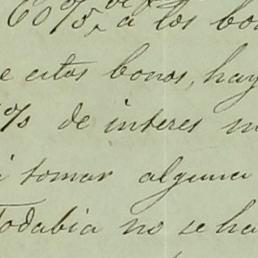 60%, a los bo
e estos bonos, hay
% de interes m
i tomar alguna
Todabia no se ha